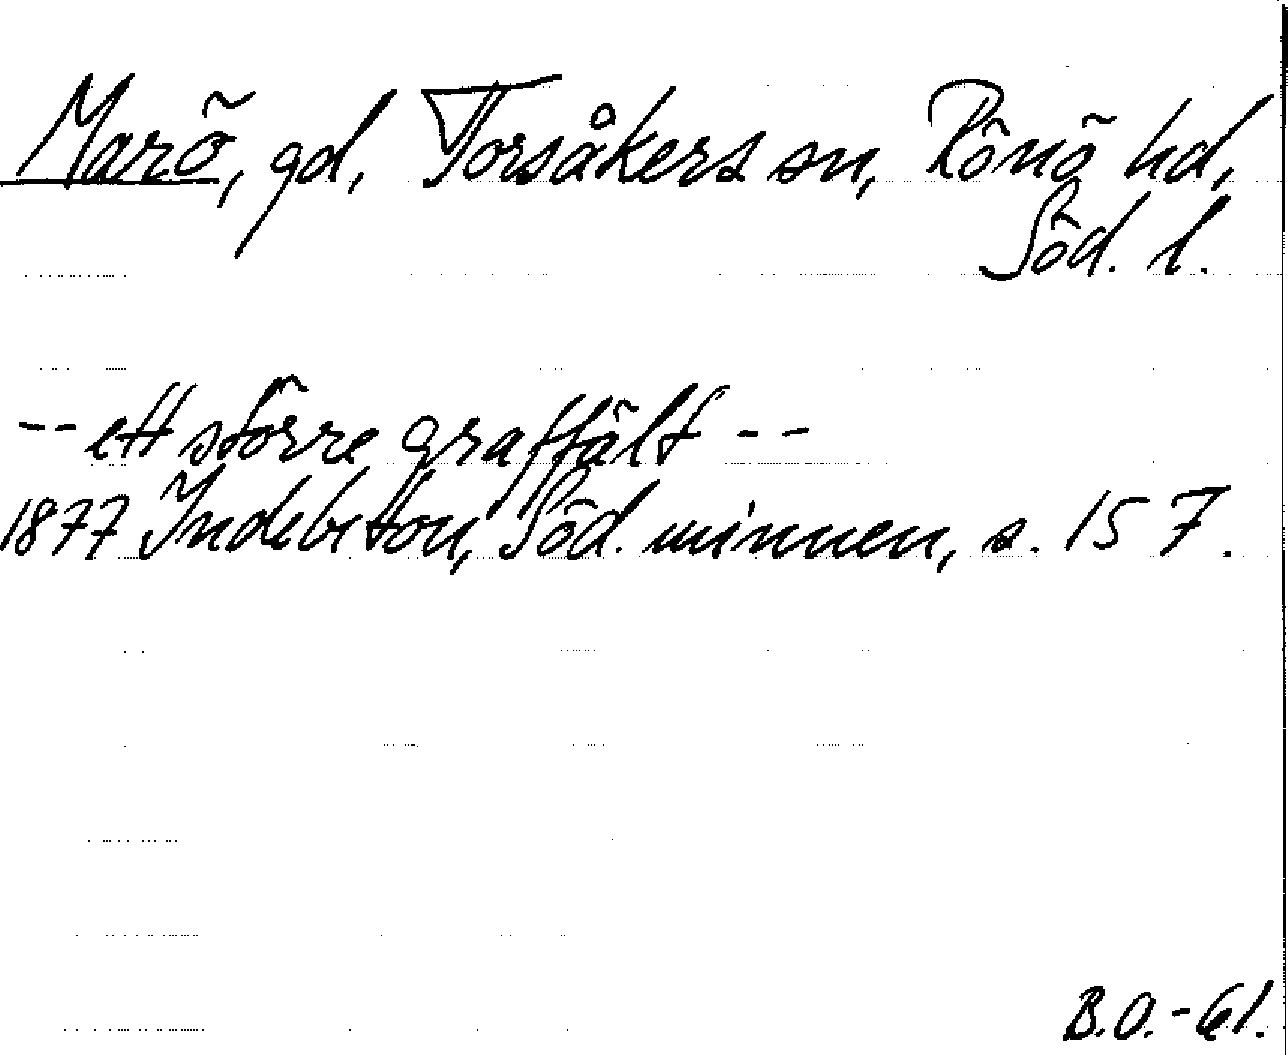 Marö, gd, Torsåkers sn, Rönö hd,
Söd. l.
-- ett större graffält --
1877 Indebetou, Söd. minnen, s. 157.
B.O.-61.